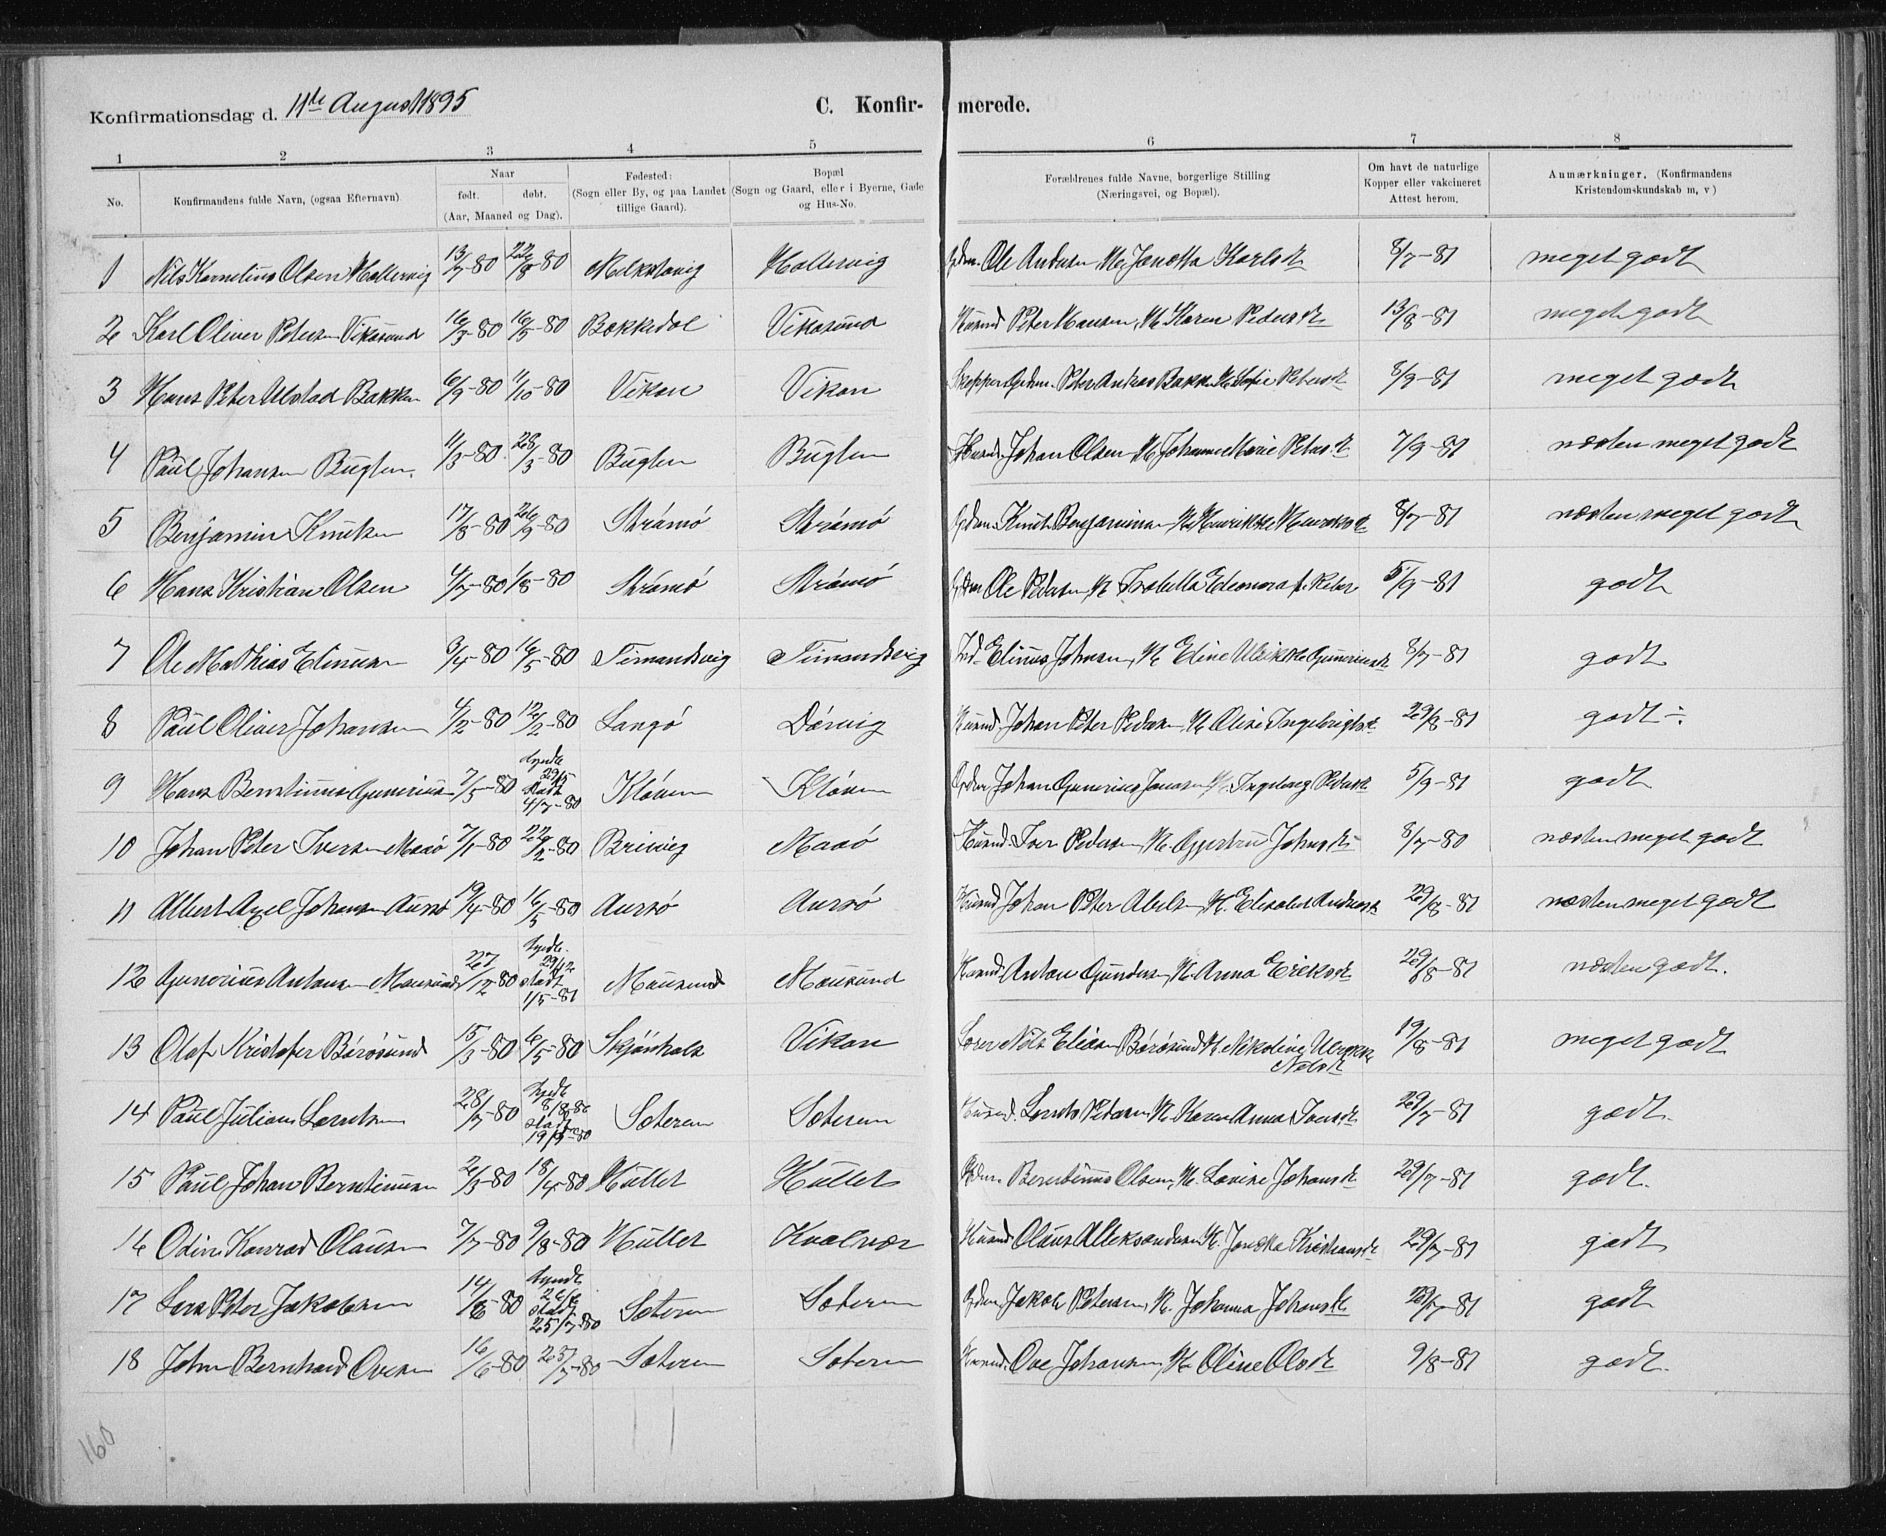 Konfirmationsdag d. 11te August 1895
C. Konfir- merede.
1 2 3 4 5 6 7 8
No. Konfirmandens fulde Navn, (ogsaa Efternavn). Naar født. døbt. (Aar, Maaned og Dag). Fødested: (Sogn eller By, og paa Landet tillige Gaard). Bopæl (Sogn og Gaard, eller i Byerne, Gade og Hus-No. Forældrenes fulde Navne, borgerlige Stilling (Næringsvei, og Bopæl). Om havt de naturlige Kopper eller vakcineret Attest herom. Anmærkninger. (Konfirmandens Kristendomskundskab m, v)
1 Nils Kornelius Olsen Hallervig 13/7-80 22/8-80 Hallervig Ole Andersen Janetta Karlsdt 8/7-81 meget godt
2 Karl Oliver Petersen Vikasund 16/3-80 16/5-80 Bækkedal Vikasund Husmd Peter Hansen, H. Karen Pedersdt 13/8-81 meget godt
3 Hans Peter Ulstad Bakken 6/9-80 1/10-80 Vikan Vikan Peter Andreas Bakken H. Sofie Petersdt 8/9-81 meget godt
4 Paul Johansen Buglen. 11/3-80 28/3-80 Buglen Buglen Husmd. Johan Olsen H. Johanna Marie Petersdt 7/9-81 næsten meget godt
5 Benjamin Knutsen 17/8-80 26/9-80 Strømø Strømø Gdm. Knut Benjaminsen H. Henrikke Henriksdt 8/7-81 næsten meget godt
6 Hans Kristian Olsen 4/7-80 1/8-80 Strømø Strømø Ole Pedersen, H Isabella Eleonora f. Peter 5/9-81 godt
7 Ole Mathias Elinusen 3/4-80 16/5-80 Timandsvig Timandsvig Ind. Elinus Johnsen, H. Eline Ulrikke Gunneriusdt 8/7-81 godt
8 Paul Oliver Johansen 4/2-80 12/2-80 Langø Dørvig Husmd Johan Peter Pedersen, H. Oline Ingebrigtsdt 29/8-81 godt ÷
9 Hans Berntinus Gunerius 7/5-80 hjmdt. 29/5 stadf. 4/7-80 Kløven Kløven Johan Gunerius Jensen H. Ingeborg Pedersdt 5/9-81 godt
10 Johan Peter Iversen Maasø 7/1-80 22/2-80 Brivig Maasø Husmd. Iver Pedersen, H. Johnsdt 8/7-80 næsten meget godt
11 Albert Axel Johansen Aursø 19/4-80 16/5-80 Aursø Aursø Husmd Johan Peter Abelsen, H. Elisabet Andersdt 29/8-81 næsten meget godt
12 Gunerius Antonsen Mausund 27/12-80 hjmdt. 29/12 stadf. 1/5-81 Mausund Mausund Husmd. Anton Gundersen, H. Anna Eriksdt 29/8-81 næsten godt.
13 Olaf Kristofer Børøsund 15/3-80 6/5-80 Skjønhals Vikan Nils Eliasen Børøsund H. Nikoline Ulrikke Nilsdt 19/8-81 meget godt
14 Paul Julian Lorntsen 28/7-80 hjmdt. 8/8-80 stadf. 19/9-80 Sæteren Sæteren Husmd. Lornts Pedersen H. Karen Anna Iversdt 29/7-81 godt.
15 Paul Johan Berntinusen 2/3-80 18/4-80 Hullet Hullet Gdm. Berntinus Olsen, H. Lovise Johansdt 29/7-81 godt.
16 Odin Konrad Olausen 7/7-80 9/8-80 Hullet Kvalvær Husmd Olaus Alleksandersen H. Jonetta Kristiansdt 29/7-81 godt
17 Lars Peter Jakobsen 14/6-80 hjmdt. 26/6 stadf. 25/7-80 Sæteren Sæteren Gdm. Jakob Petersen, H. Johanna Johansdt 29/7-81 godt
18 John Bernhard Ovesen 16/6-80 25/7-80 Sæteren Sæteren Husmd. Ove Johansen, H. Oline Olsdt 9/8-81 godt.
160